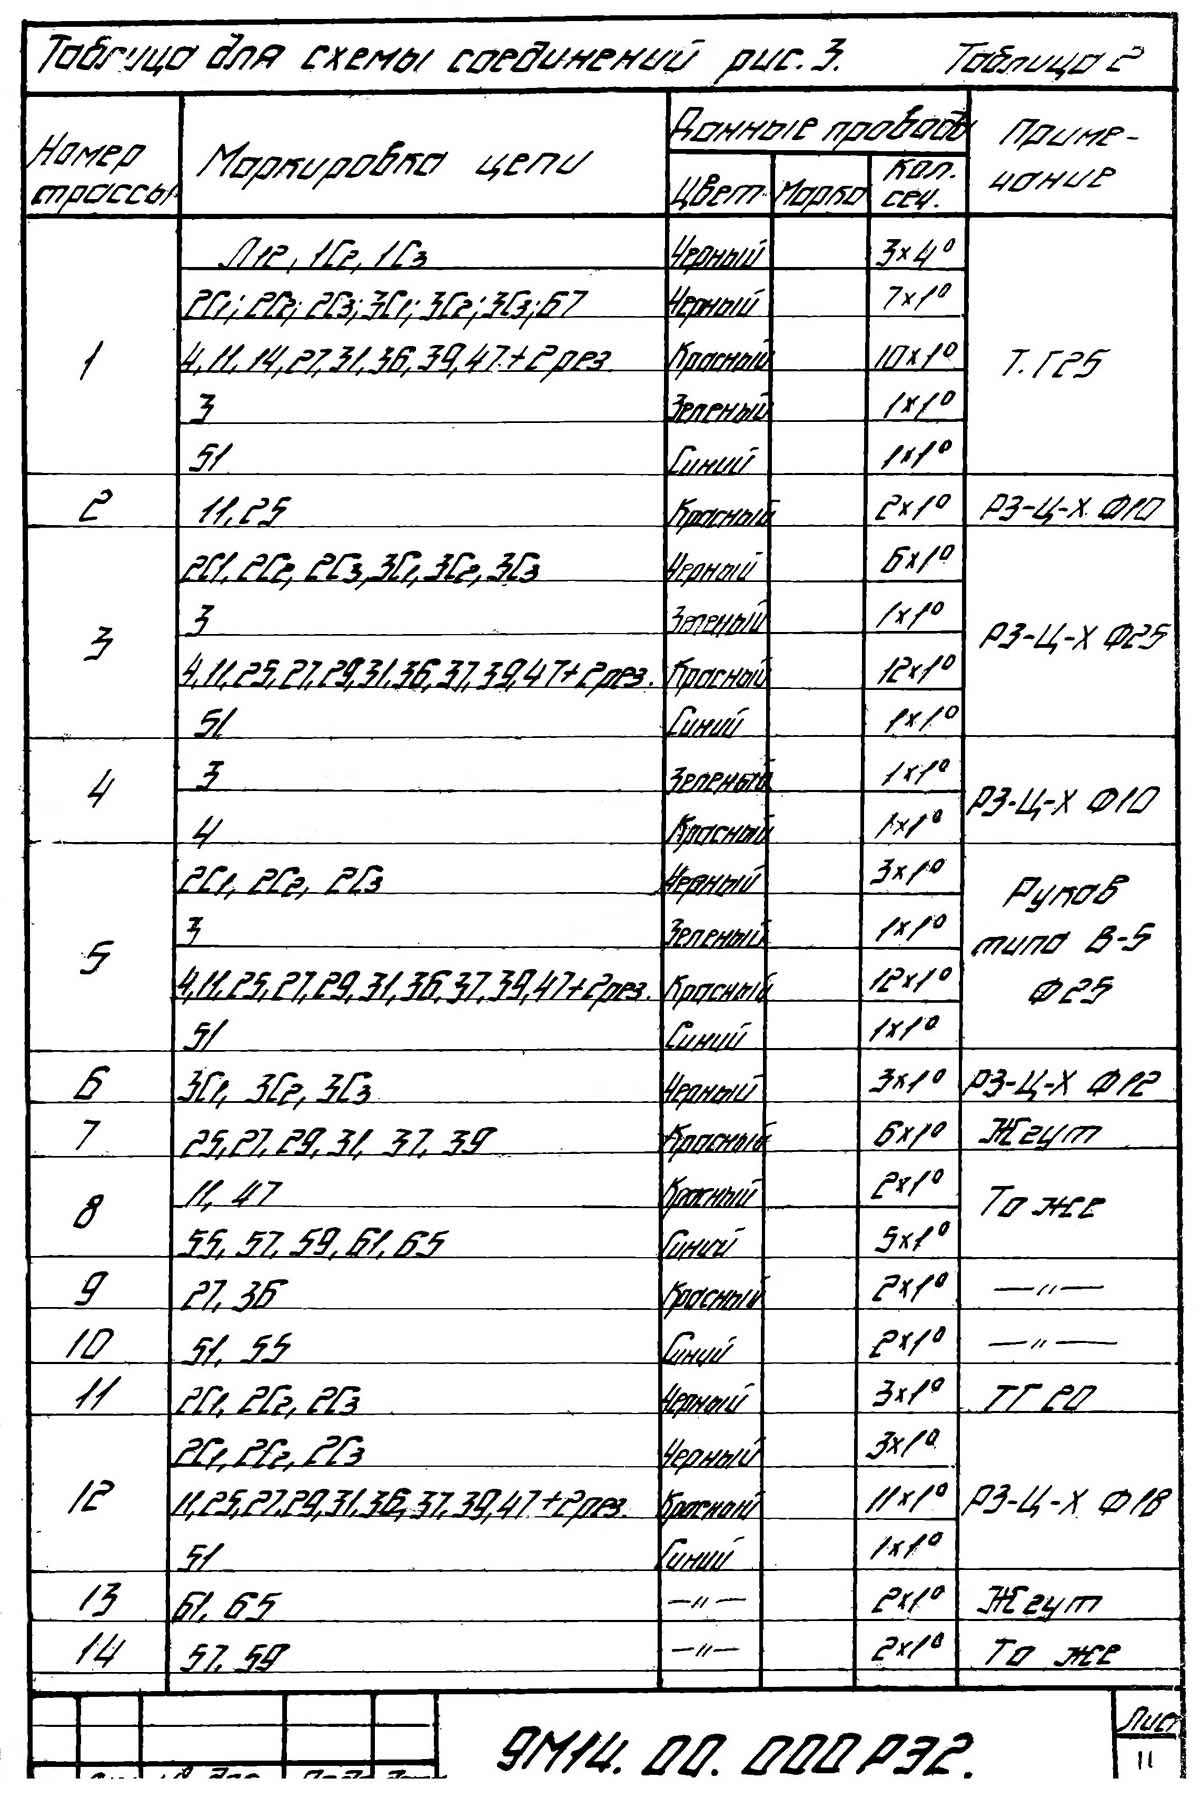 Таблица для схемы соединений рис. 3. Таблица 2
Номер трассы Маркировка цепи Данные провода Приме-
чание
Цвет Марка Кол. сеч.
1 Л12, 1С2, 1С3 Черный 3×4⁰ Т. Г25
2С1; 2С2; 2С3; 3С1; 3С2; 3С3; 67 Черный 7×1⁰
4, 11, 14, 27, 31, 36, 39, 47. + 2 рез. Красный 10×1⁰
3 Зеленый 1×1⁰
51 Синий 1×1⁰
2 11, 25 Красный 2×1⁰ РЗ-Ц-Х Ф10
3 2С1, 2С2, 2С3, 3С1, 3С2, 3С3 Черный 6×1⁰ РЗ-Ц-Х Ф25
3 Зеленый 1×1⁰
4, 11, 25, 27, 29, 31, 36, 37, 39, 47 + 2 рез. Красный 12×1⁰
51 Синий 1×1⁰
4 3 Зеленый 1×1⁰ РЗ-Ц-Х Ф10
4 Красный 1×1⁰
5 2С1, 2С2, 2С3 Черный 3×1⁰ Рукав
3 Зеленый 1×1⁰ типа В-5
4, 11, 25, 27, 29, 31, 36, 37, 39, 47 + 2 рез. Красный 12×1⁰ Ф25
51 Синий 1×1⁰
6 3С1, 3С2, 3С3 Черный 3×1⁰ РЗ-Ц-Х Ф12
7 25, 27, 29, 31, 37, 39 Красный 6×1⁰ Жгут
8 11, 47 Красный 2×1⁰ То же
55, 57, 59, 61, 65 Синий 5×1⁰
9 27, 36 Красный 2×1⁰ —"—
10 51, 55 Синий 2×1⁰ —"—
11 2С1, 2С2, 2С3 Черный 3×1⁰ ТГ 20
12 2С1, 2С2, 2С3 Черный 3×1⁰ РЗ-Ц-Х Ф18
11, 25, 27, 29, 31, 36, 37, 39, 47 + 2 рез. Красный 11×1⁰
51 Синий 1×1⁰
13 61, 65 —"— 2×1⁰ Жгут
14 57, 59 —"— 2×1⁰ То же
9М14. 00. 000 РЭ2.
Лист
11